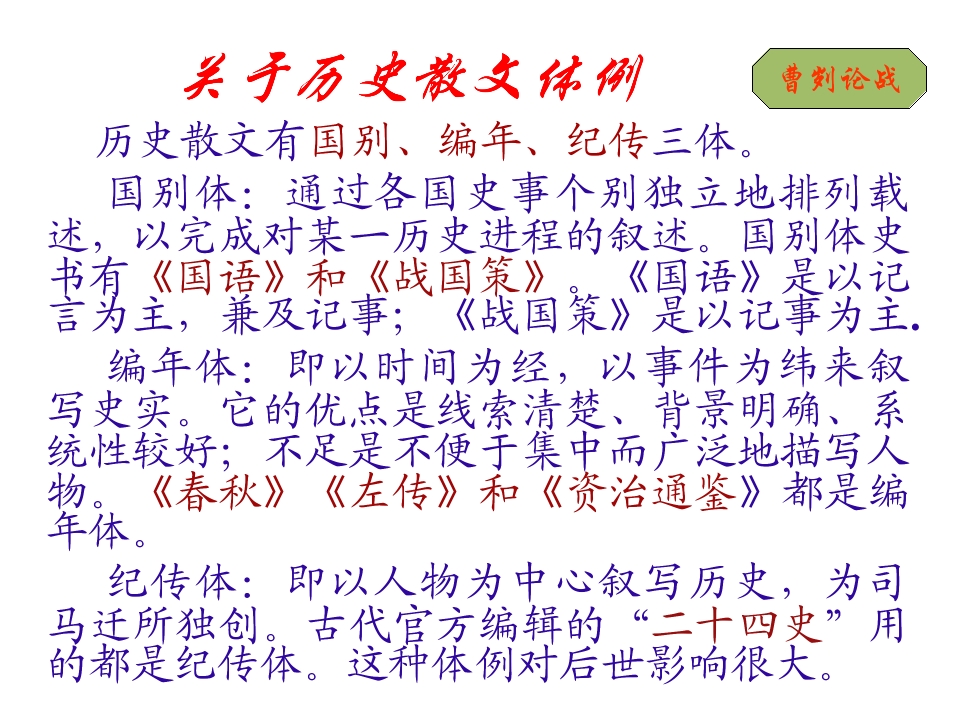 关于历史散文体例
曹刿论战
历史散文有国别、编年、纪传三体。
国别体：通过各国史事个别独立地排列载
述，以完成对某一历史进程的叙述。国别体史
书有《国语》和《战国策》。《国语》是以记
言为主，兼及记事；《战国策》是以记事为主.
编年体：即以时间为经，以事件为纬来叙
写史实。它的优点是线索清楚、背景明确、系
统性较好；不足是不便于集中而广泛地描写人
物。《春秋》《左传》和《资治通鉴》都是编
年体。
纪传体：即以人物为中心叙写历史，为司
马迁所独创。古代官方编辑的“二十四史”用
的都是纪传体。这种体例对后世影响很大。